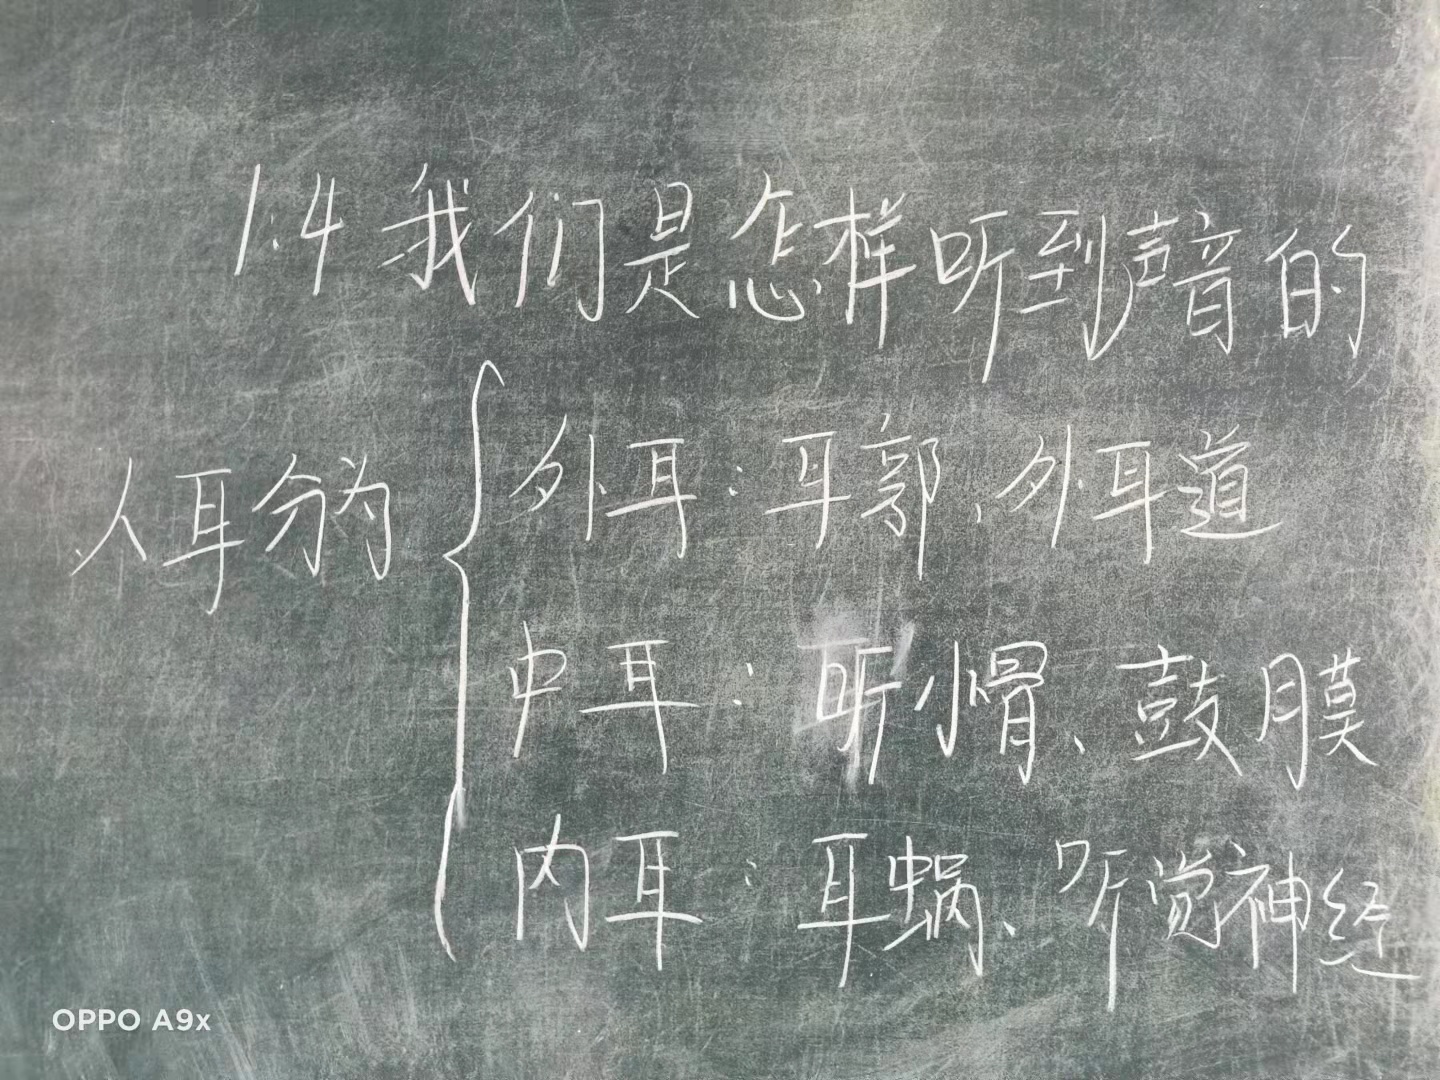 1.4 我们是怎样听到声音的
人耳分为
外耳：耳郭、外耳道
中耳：听小骨、鼓膜
内耳：耳蜗、听觉神经
OPPO A9x